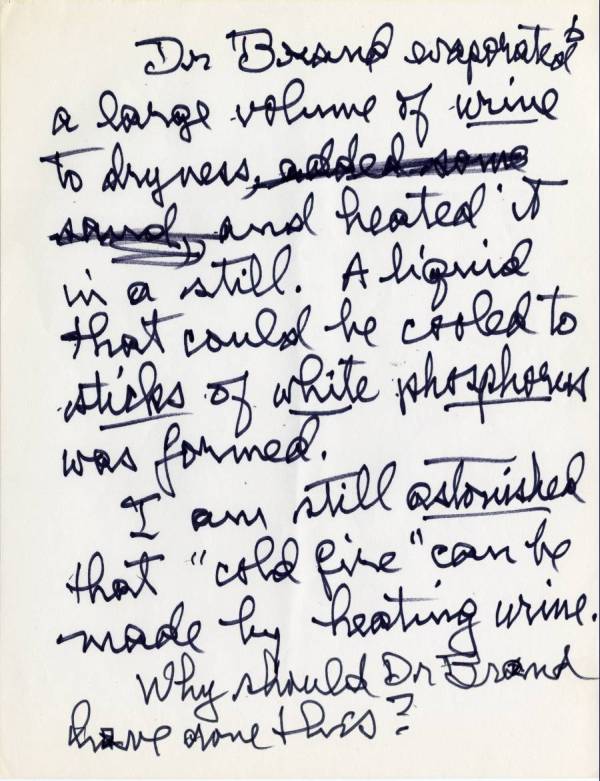 Dr Brand evaporated
a large volume of urine
to dryness, added some
sand, and heated it
in a still. A liquid
that could be cooled to
sticks of white phosphorus
was formed.
I am still astonished
that "cold fire" can be
made by heating urine.
Why should Dr Brand
have done this?